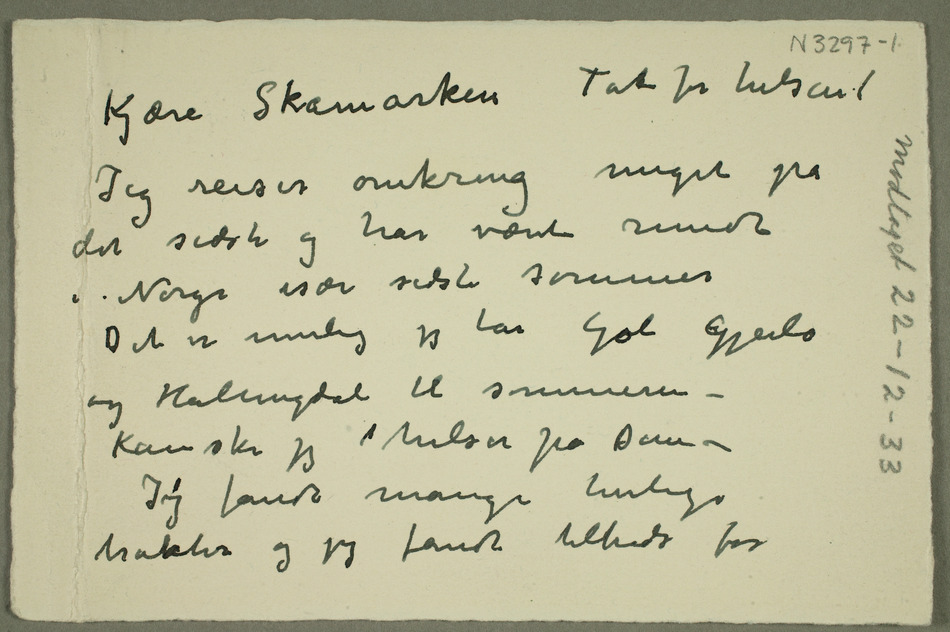 N3297-1
Kjære Skamarken Tak for hilsen!
Jeg reiser omkring meget på
det sidste og har været rundt
i Norge især sidste sommer
Det er mulig jeg tar Gol Gjeilo
og Hallingdal til sommeren –
Kanske jeg hilser på Dem –
Jeg fandt mange herlige
trakter og jeg fandt tilbeds for
mottaget 22-12-33